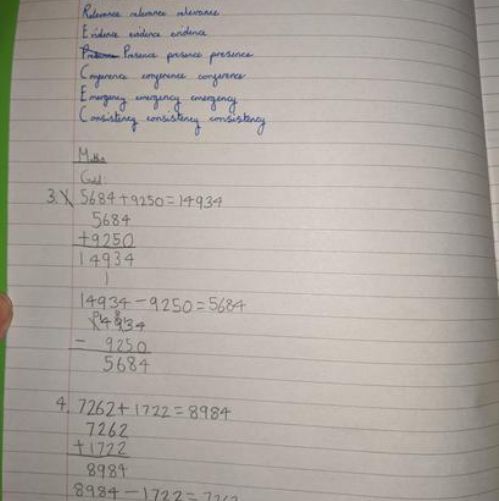 Relevance relevance relevance
Evidence evidence evidence
Presence presence presence
Conference conference conference
Emergency emergency emergency
Consistency consistency consistency
Maths
Gold:
3. 5684+9250=14934
5684
+9250
14934
1
14934-9250=5684
14934
- 9250
5684
4. 7262+1722=8984
7262
+1722
8984
8984-1722=7262